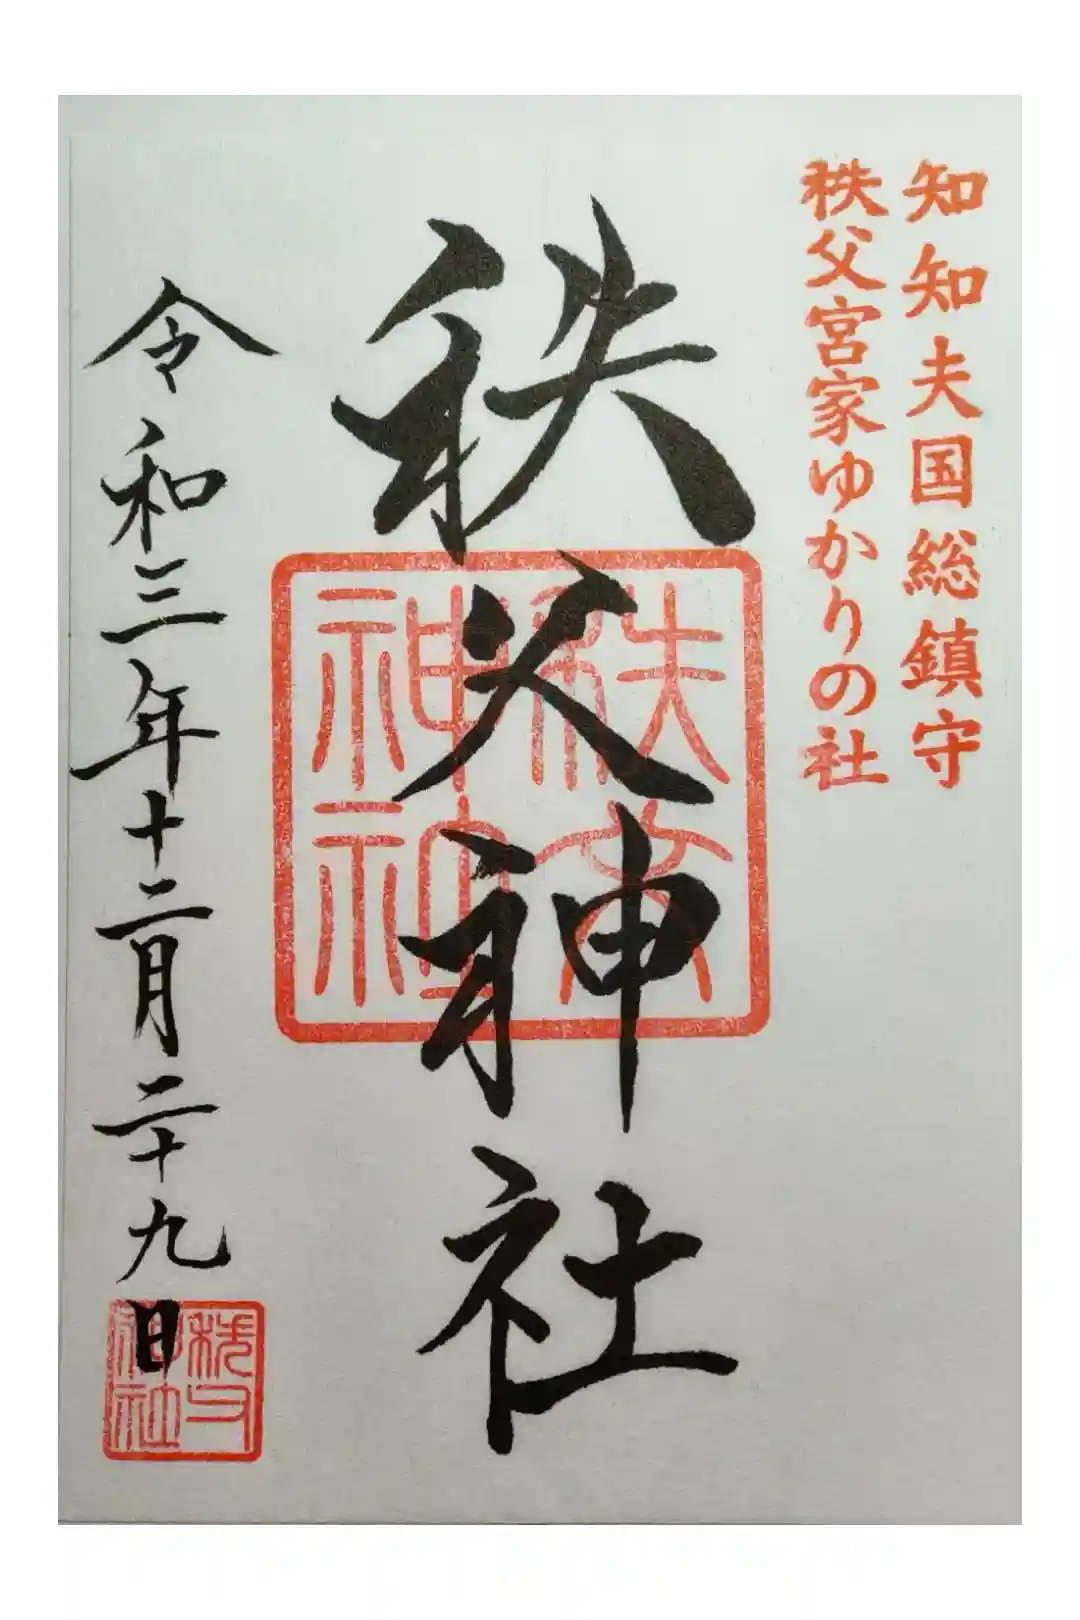 知知夫国総鎮守
秩父宮家ゆかりの社
秩父神社
秩父
神社
令和三年十二月二十九日
神社